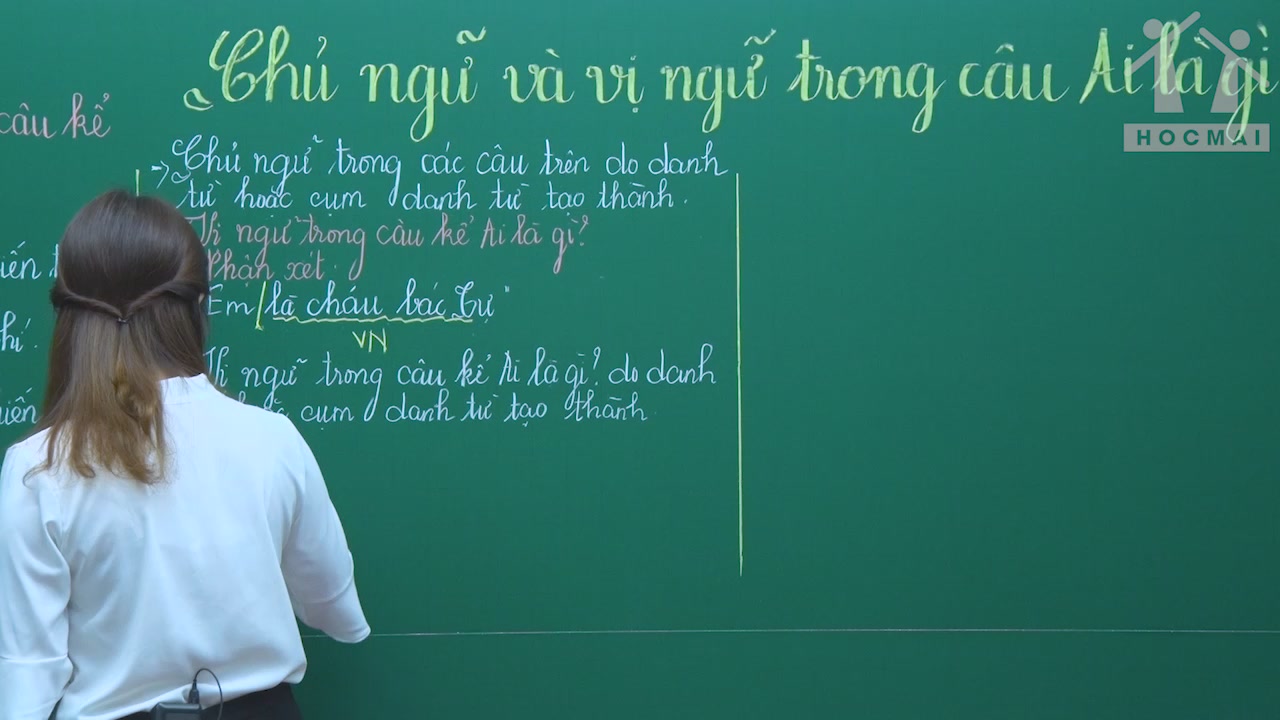 Chủ ngữ và vị ngữ trong câu Ai là gì
HOCMAI
câu kể
Chủ ngữ trong các câu trên do danh
từ hoặc cụm danh từ tạo thành.
Vị ngữ trong câu kể Ai là gì?
Nhận xét:
Em / là cháu bác Tự"
VN
Vị ngữ trong câu kể Ai là gì? do danh
cụm danh từ tạo thành